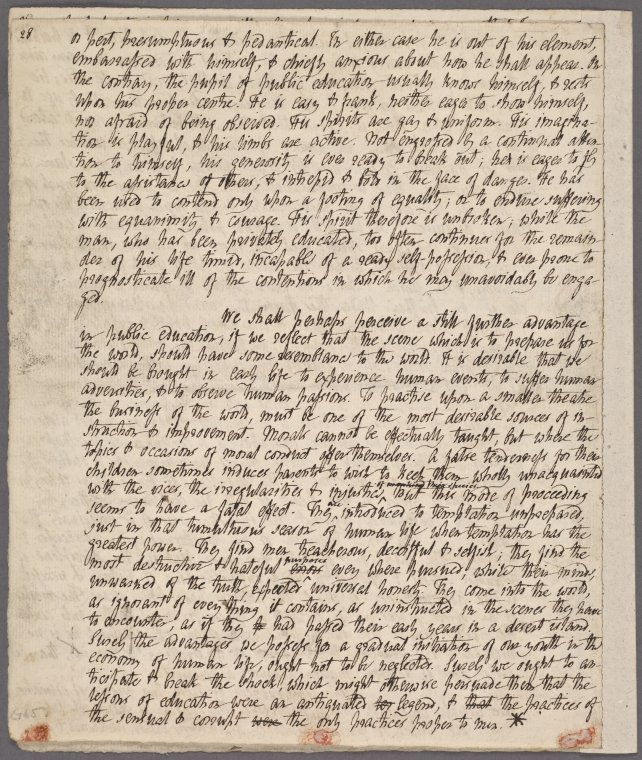 28
or pert, presumptuous & pedantical. In either case he is out of his element,
embarrassed with himself, & chiefly anxious about how he shall appear. On
the contrary, the pupil of public education usually knows himself, & rests
upon his proper centre. He is easy & frank, neither eager to show himself,
nor afraid of being observed. His spirits are gay & uniform. His imagina-
tion is playful, & his limbs are active. Not engrossed by a continual atten-
tion to himself, his generosity is ever ready to break out; he is eager to fly
to the assistance of others, & intrepid & bold in the face of danger. He has
been used to contend only upon a footing of equality; or to endure suffering
with equanimity & courage. His spirit therefore is unbroken; while the
man, who has been privately educated, too often continues for the remain-
der of his life timid, incapable of a ready self-possession, & ever prone to
prognosticate ill of the contentions in which he may unavoidably be enga-
ged.
We shall perhaps perceive a still further advantage
in public education, if we reflect that the scene which is to prepare us for
the world, should have some resemblance to the world. It is desirable that we
should be brought in early life to experience human events, to suffer human
adversities, & to observe human passions. To practise upon a smaller theatre
the business of the world, must be one of the most desirable sources of in-
struction & improvement. Morals cannot be effectually taught, but where the
topics & occasions of moral conduct offer themselves. A false tenderness for their
children sometimes induces parents to wish to keep them wholly unacquainted
with the vices, the irregularities & injustice of their species. But this mode of proceeding
seems to have a fatal effect. They are introduced to temptation unprepared,
just in that tumultuous season of human life when temptation has the
greatest power. They find men treacherous, deceitful & selfish; they find the
most destructive & hateful purposes every where pursued, while their minds,
unwarned of the truth, expected universal honesty. They come into the world,
as ignorant of every thing it contains, as uninstructed in the scenes they have
to encounter, as if they had passed their early years in a desert island.
Surely the advantages we possess for a gradual initiation of our youth in the
economy of human life, ought not to be neglected. Surely we ought to an-
ticipate & break the shock, which might otherwise persuade them that the
lessons of education were an antiquated legend, & the practices of
the sensual & corrupt the only practices proper to men. *